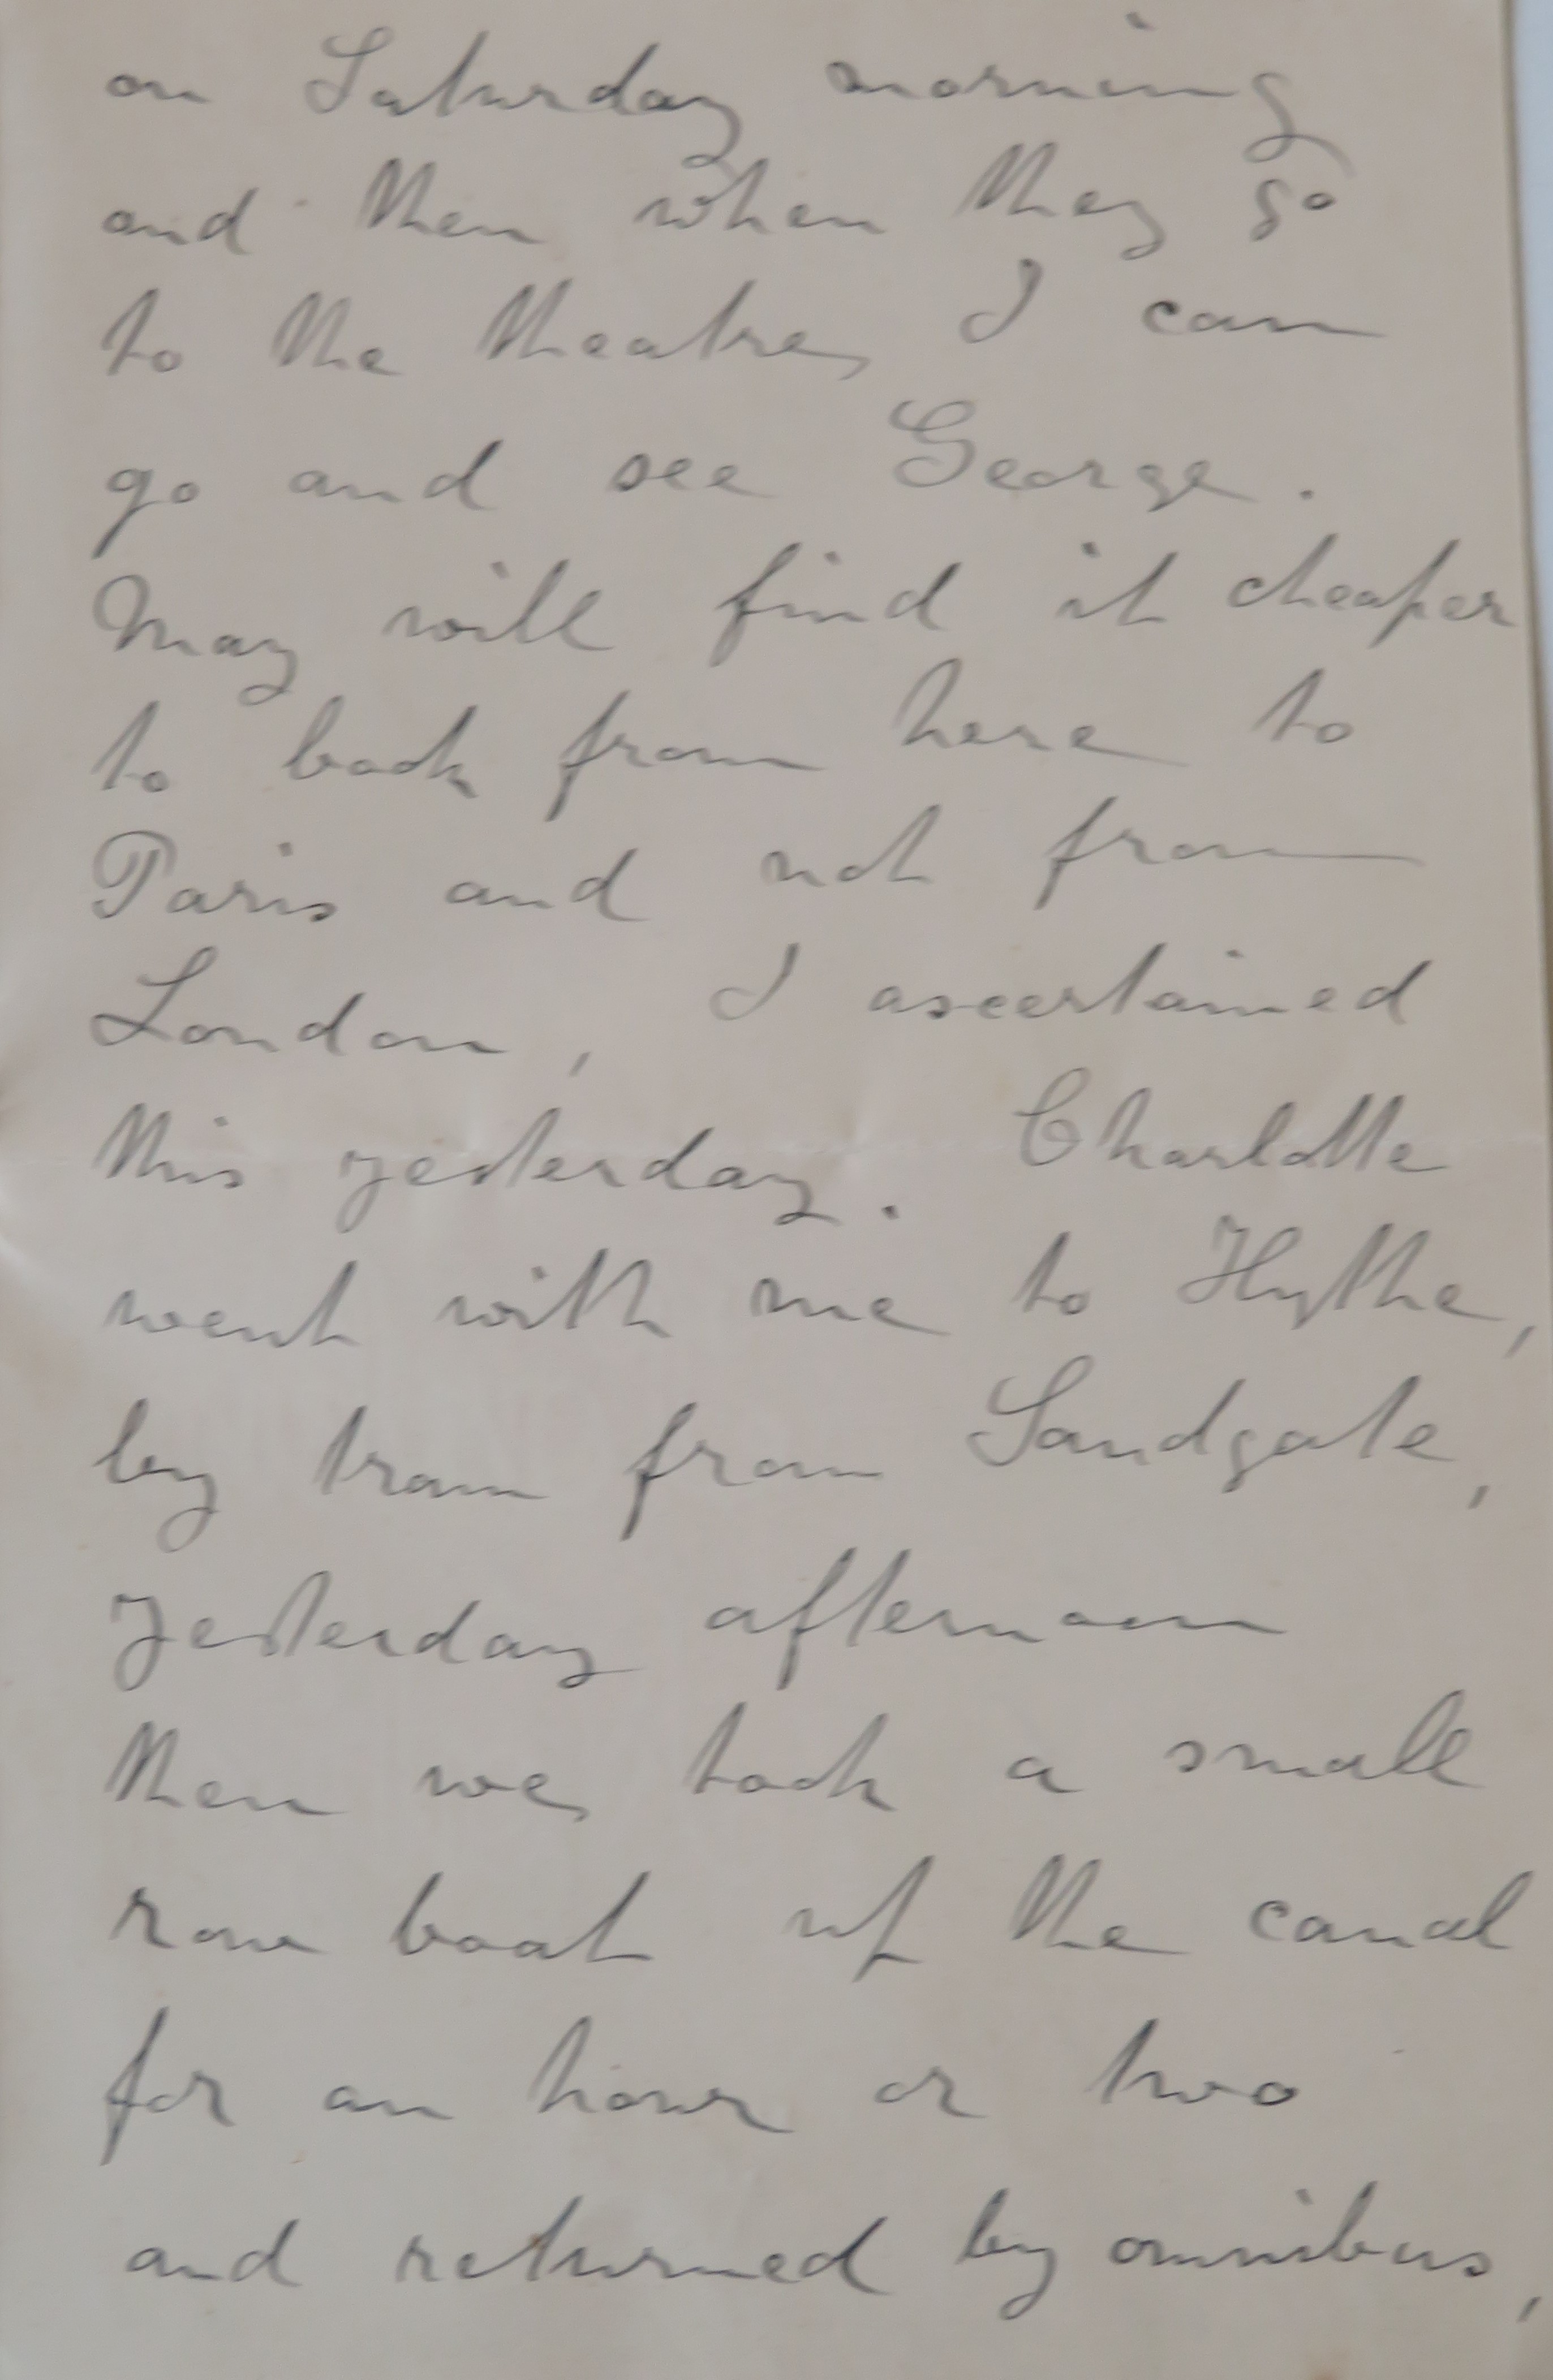 on Saturday morning
and then when they go
to the theatre, I can
go and see George.
May will find it cheaper
to book from here to
Paris and not from
London, I ascertained
this yesterday. Charlotte
went with me to Hythe,
by tram from Sandgate,
yesterday afternoon
then we, took a small
row boat up the canal
for an hour or two
and returned by omnibus,